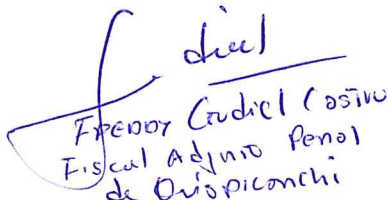 diel
FREDDY Cudiel Casivo
Fiscal Adjnto Penal
de Quispicanchi